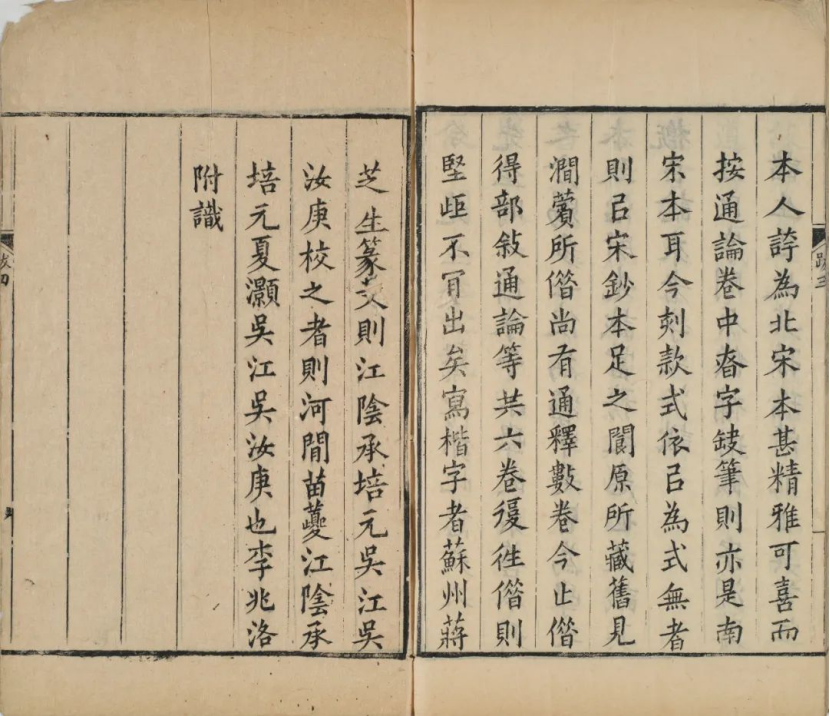 跋三
本人誇為北宋本甚精雅可喜而
按通論卷中昚字缺筆則亦是南
宋本耳今刻款式依㠯為式無者
則㠯宋鈔本足之閬原所藏舊見
澗薲所借尚有通釋數卷今止借
得部敘通論等共六卷復往借則
堅岠不肎出矣寫楷字者蘇州蔣
芝生篆文則江陰承培元吳江吳
汝庚校之者則河間苗夔江陰承
培元夏灝吳江吳汝庚也李兆洛
附識
跋四